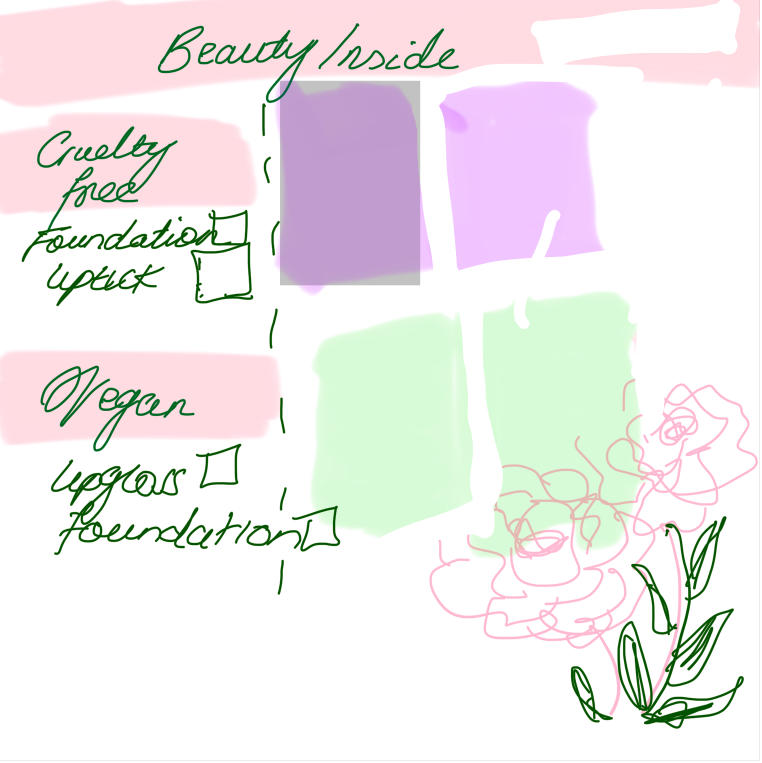 Beauty Inside
Cruelty
free
Foundation
liptick
Vegan
lipgloss
Foundation